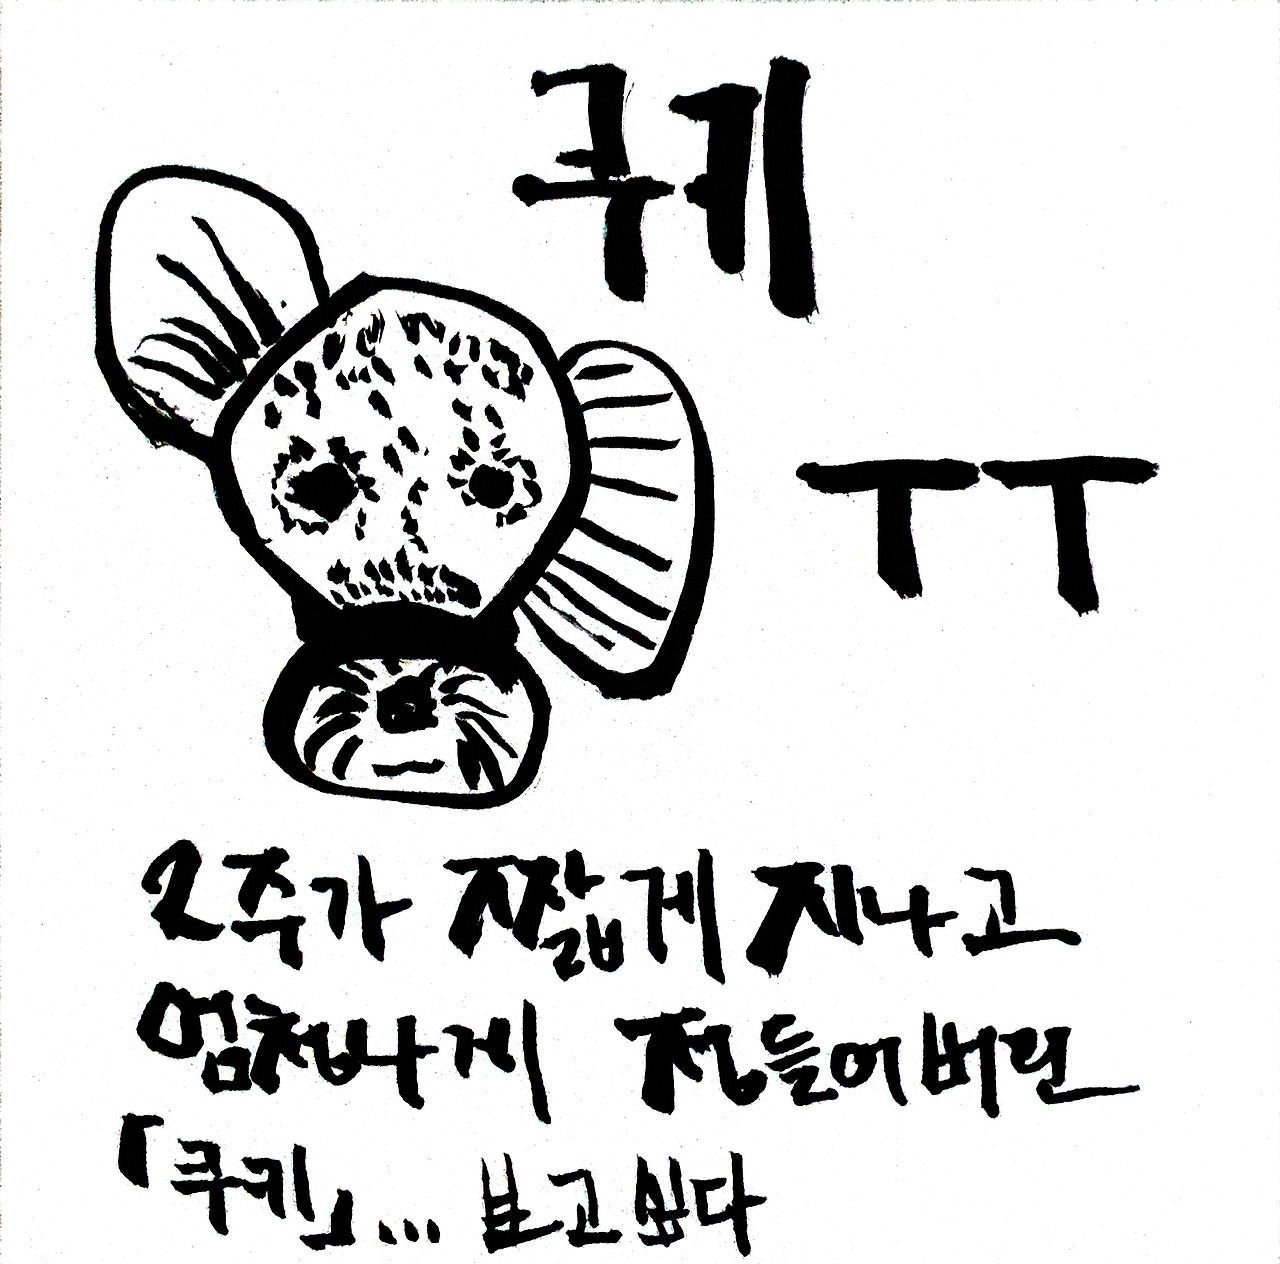 쿠키
ㅜㅜ
2주가 짧게 지나고
엄청나게 정들어버린
「쿠키」... 보고싶다